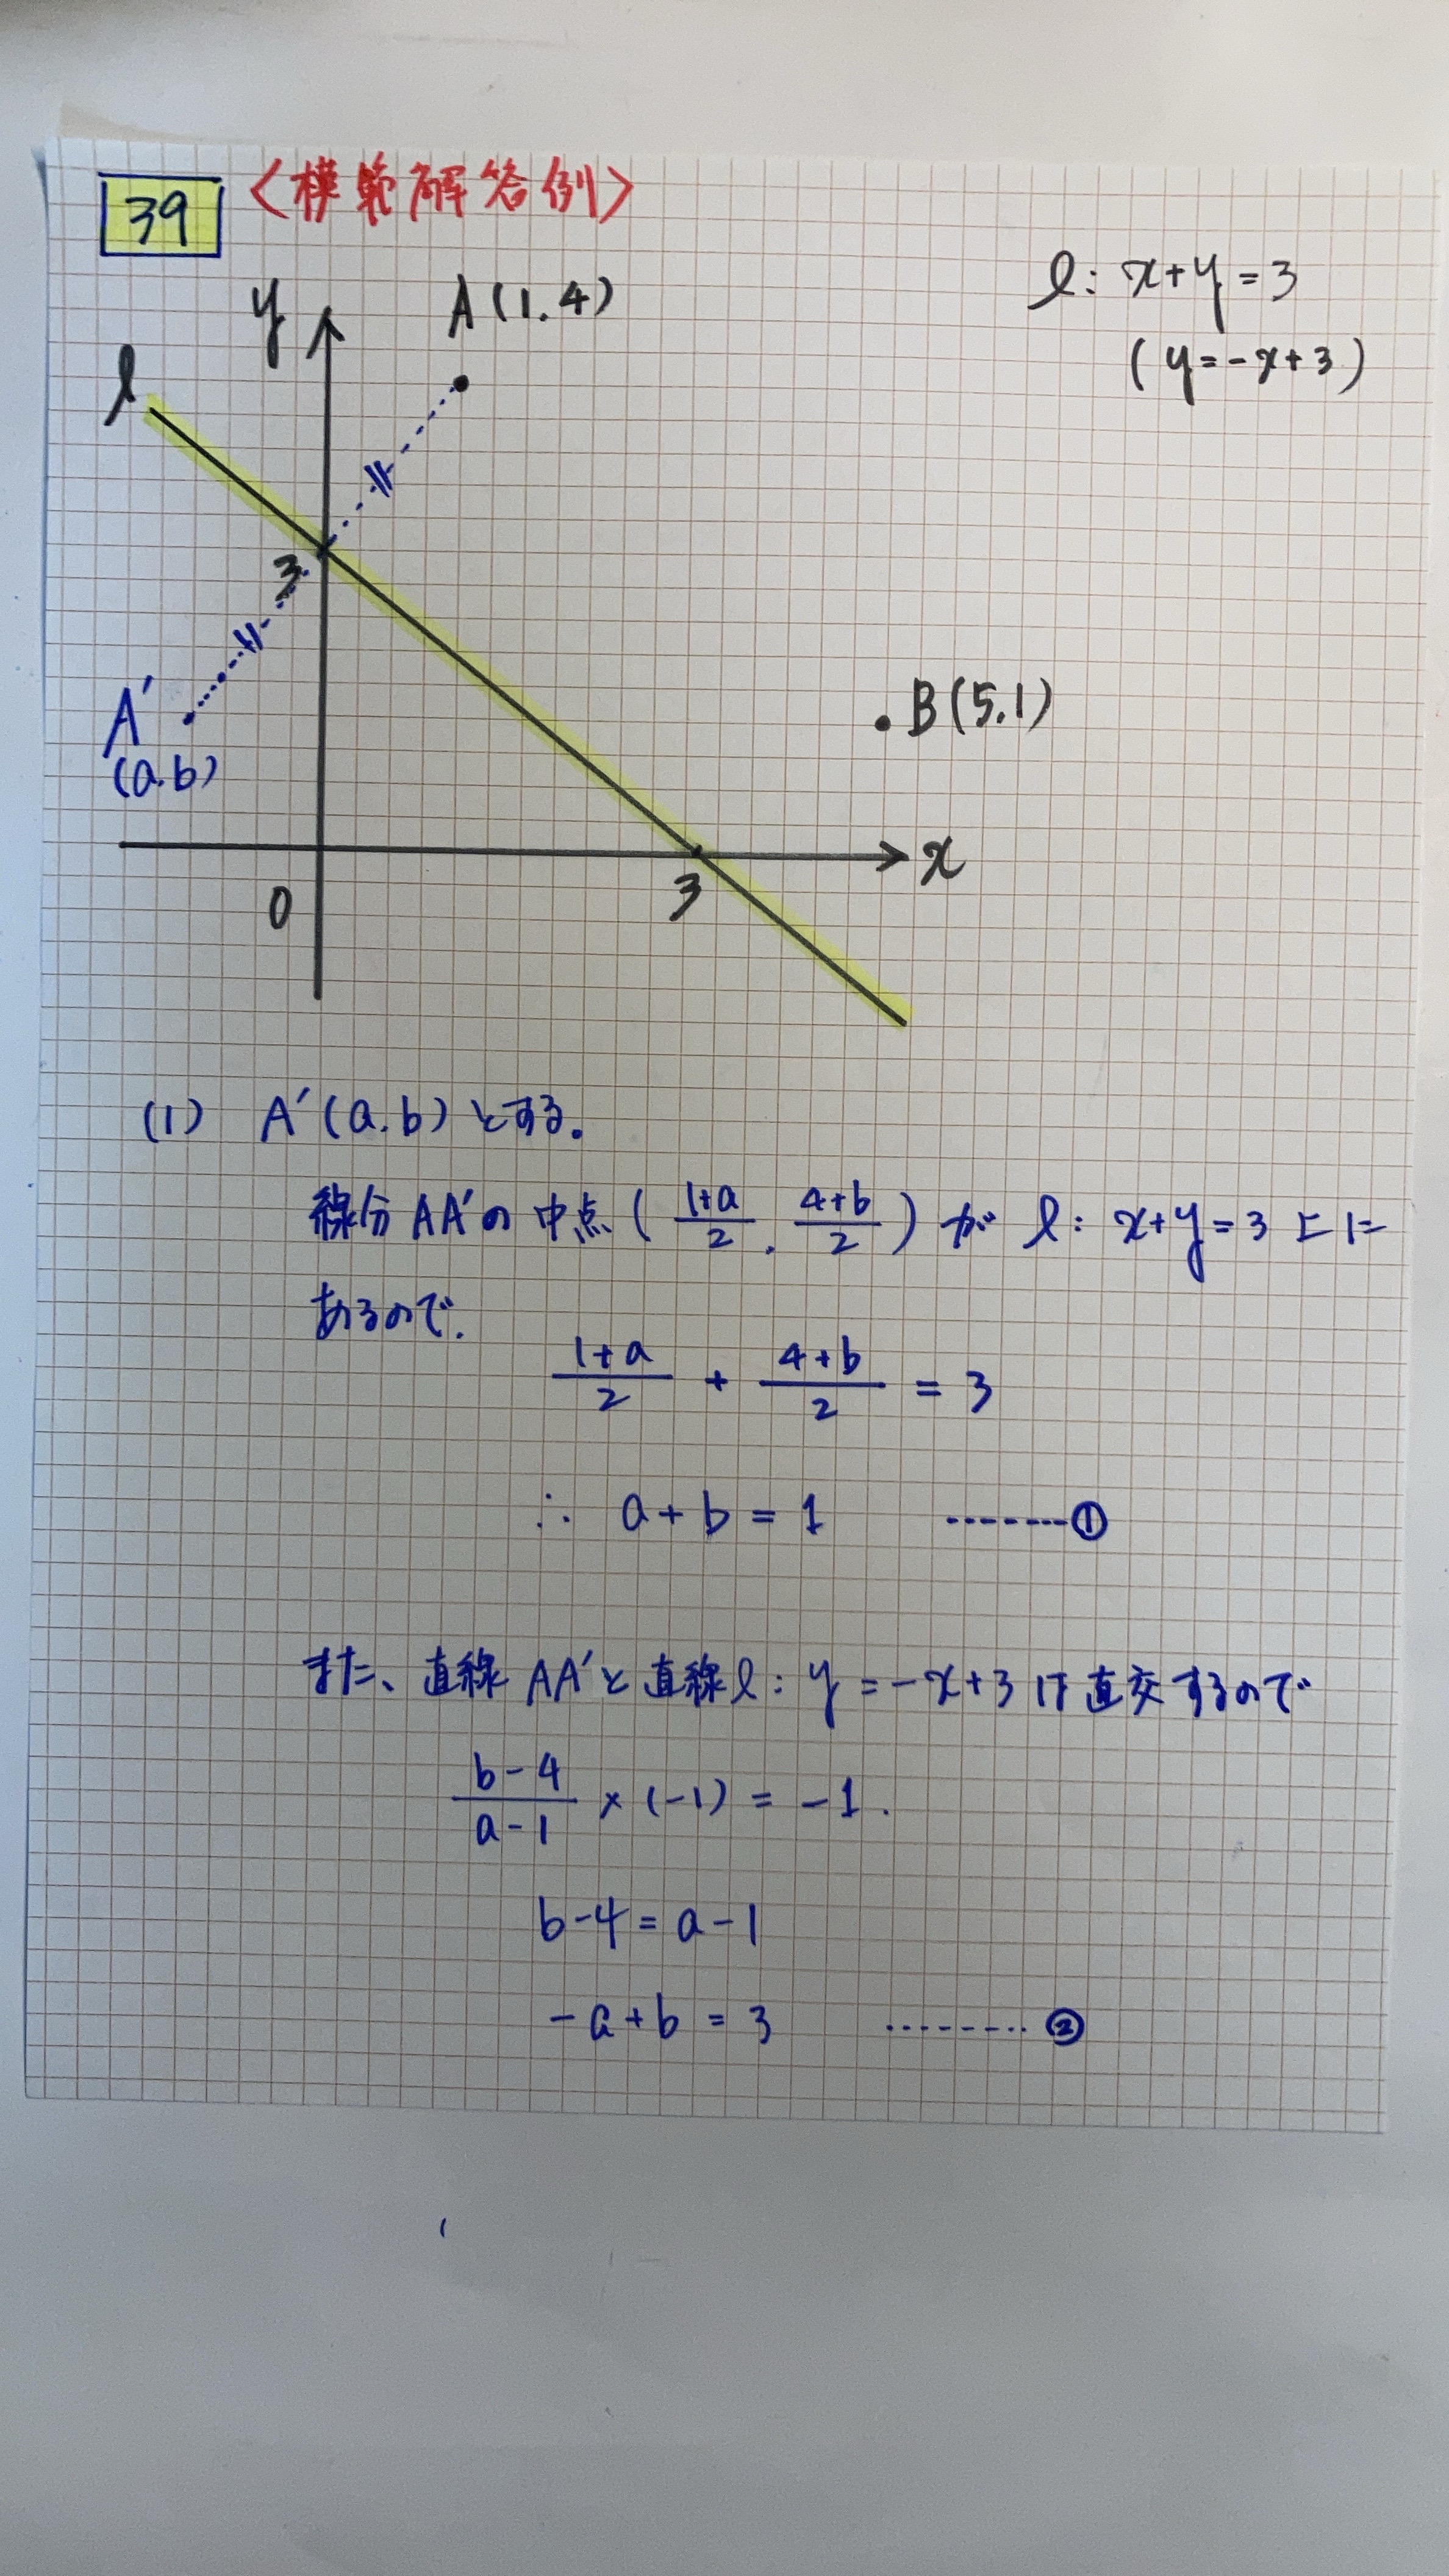 39 〈模範解答例〉
l: x+y=3
(y=-x+3)
y
A(1.4)
l
3
A'
(a.b)
B(5.1)
x
0
3
(1) A'(a.b)とする。
線分AA'の中点((1+a)/2 . (4+b)/2)が l: x+y=3 上に
あるので.
(1+a)/2 + (4+b)/2 = 3
∴ a+b=1 --------①
また、直線AA'と直線l: y=-x+3は直交するので
(b-4)/(a-1) × (-1) = -1.
b-4=a-1
-a+b=3 --------②